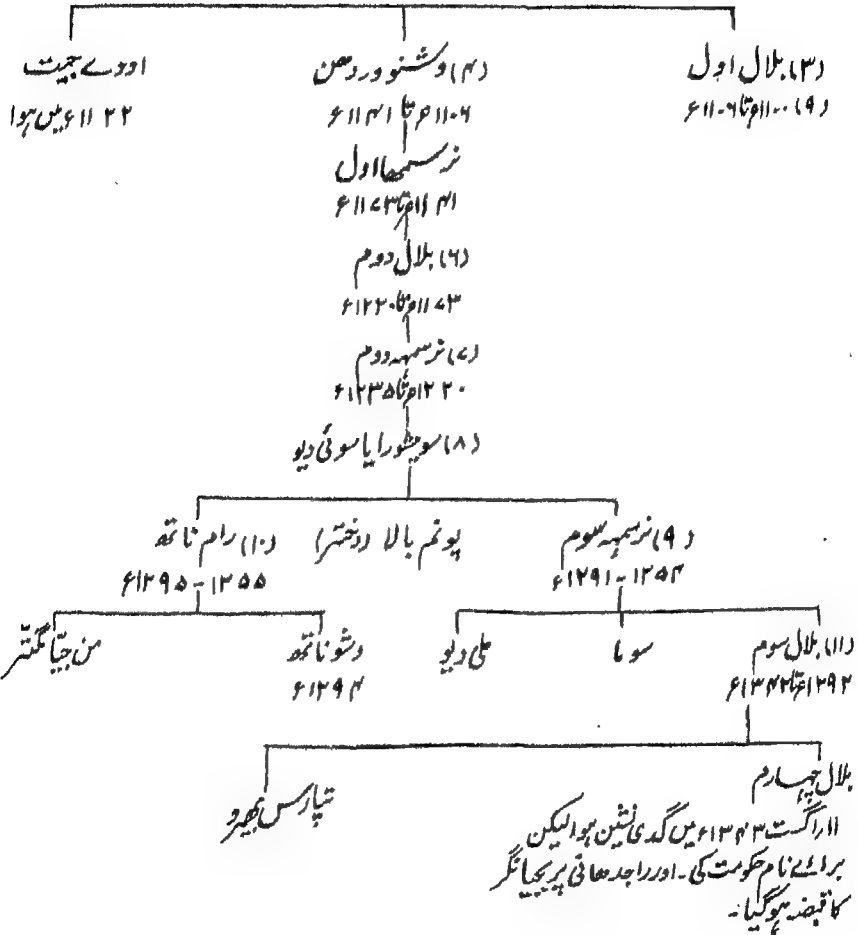 (۳) بلال اول
(۹) ۱۱۰۰ء تا ۱۱۰۶ء
(۴) وشنو وردھن
۱۱۰۶ء تا ۱۱۴۱ء
اودے جیت
۱۱۲۲ء میں ہوا
نرسمہا اول
۱۱۴۱ء تا ۱۱۷۳ء
(۶) بلال دوم
۱۱۷۳ء تا ۱۲۲۰ء
(۷) نرسمہہ دوم
۱۲۲۰ء تا ۱۲۳۵ء
(۸) سویشورا یا سوئی دیو
(۹) نرسمہہ سوم
۱۲۵۴ - ۱۲۹۱ء
پونم بالا (دختر)
(۱۰) رام ناتھ
۱۲۵۵ - ۱۲۹۵ء
(۱۱) بلال سوم
۱۲۹۲ء تا ۱۳۴۲ء
سوما
علی دیو
وشوناتھ
۱۲۹۴ء
من جیتا
بلال چہارم
۱۱ اگست ۱۳۴۳ء میں گدی نشین ہوا لیکن
برائے نام حکومت کی۔ اور راجدھانی پر بیجیانگر
کا قبضہ ہوگیا۔
تپارس بھیرو